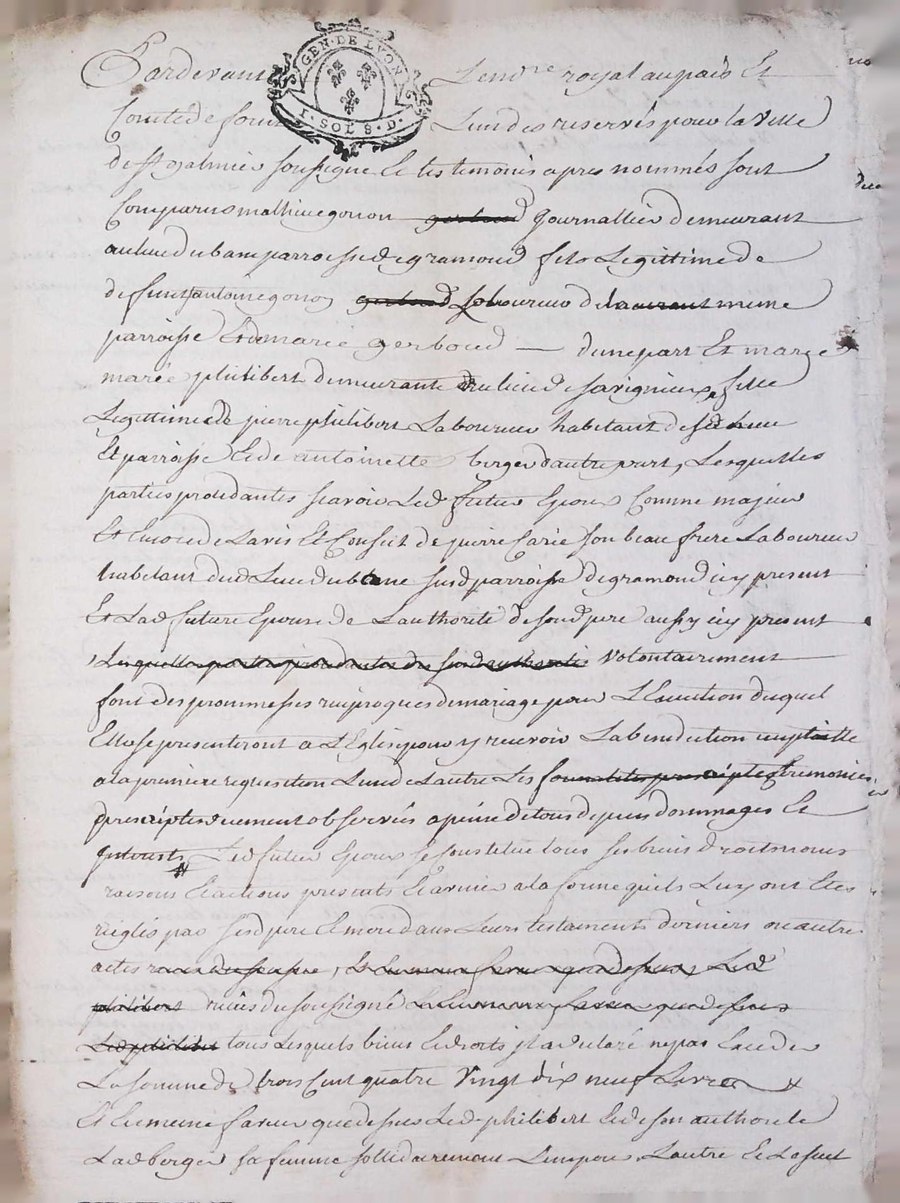 GEN · DE LYON
I · SOL 8 · D ·
Pardevant Le no.re royal au pais Et
Comté de forest L'un des reservés pour la ville
de St galmier soussigné Et les temoins apres nommés sont
Comparus mathieu gonon journallier demeurant
au lieu du bane parroisse de gramond fils Legittime de
defunt antoine gonon laboureur de meme
parroisse Et de marie gerboud — d'une part Et
marie philibert demeurante au lieu de savignieu fille
Legittime de pierre philibert Laboureur habitant dud Lieu
Et parroisse Et de antoinette berger d'autre part, Lesquelles
parties procedantes scavoir Led futur Epoux Comme majeur
Et Encor de L'avis Et Conseil de pierre Carié son beau frere Laboureur
habitant dud Lieu du bane susd parroisse de gramond icy present
Et Lad future Epouse de L'authorité de sond pere aussy icy present
Lesquelles parties procedantes des susd authorités volontairement
font des prommesses reciproques de mariage pour L'Execution duquel
Elles se presenteront a L'Eglise pour y recevoir La benediction nuptialle
a la premiere requisition L'un de L'autre Les formalités prescriptes ceremonies
prescriptes duement observées a peine de tous depens dommages Et
interests, Led futur Epoux se constitue tous ses biens droits noms
raisons Et actions presents Et avenir a la forme qu'ils Luy ont Etés
reiglés par sesd pere Et mere dans Leurs testaments derniers ou autres
actes
philibert receus du soussigné
tous Lesquels biens Et droits il a declaré ne pas Exceder
La somme de trois Cent quatre vingt dix neuf Livres
Et En meme faveur que dessus Led philibert Et de son authorité
Lad berger sa femme sollidairement L'un pour L'autre Et Le seul